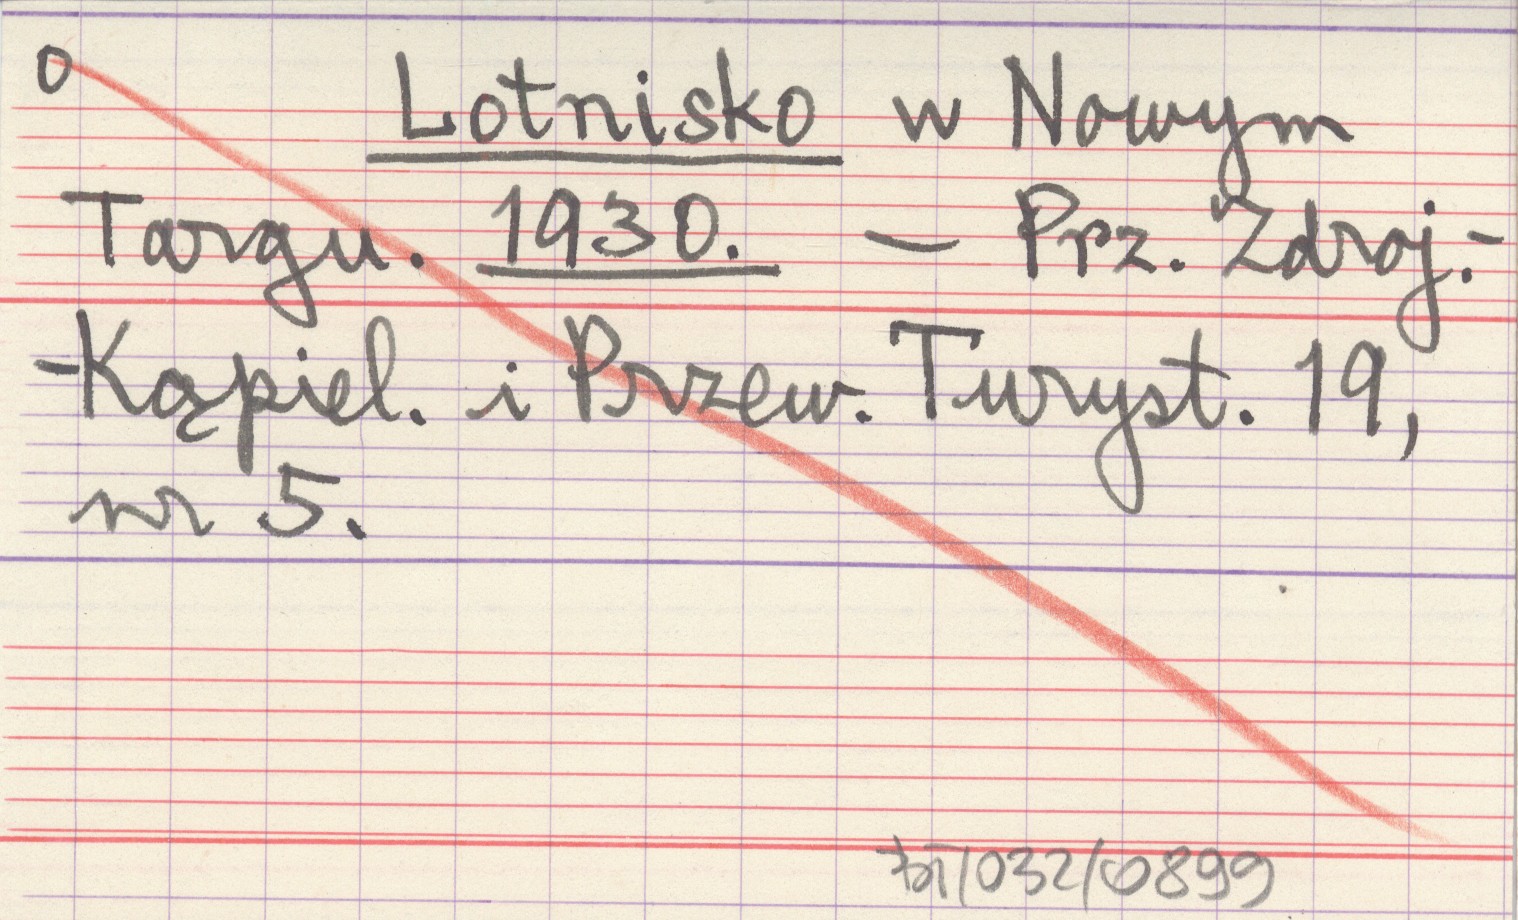 o
Lotnisko w Nowym
Targu. 1930. — Prz. Zdroj.-
-Kąpiel. i Przew. Turyst. 19,
nr 5.
/032/0899